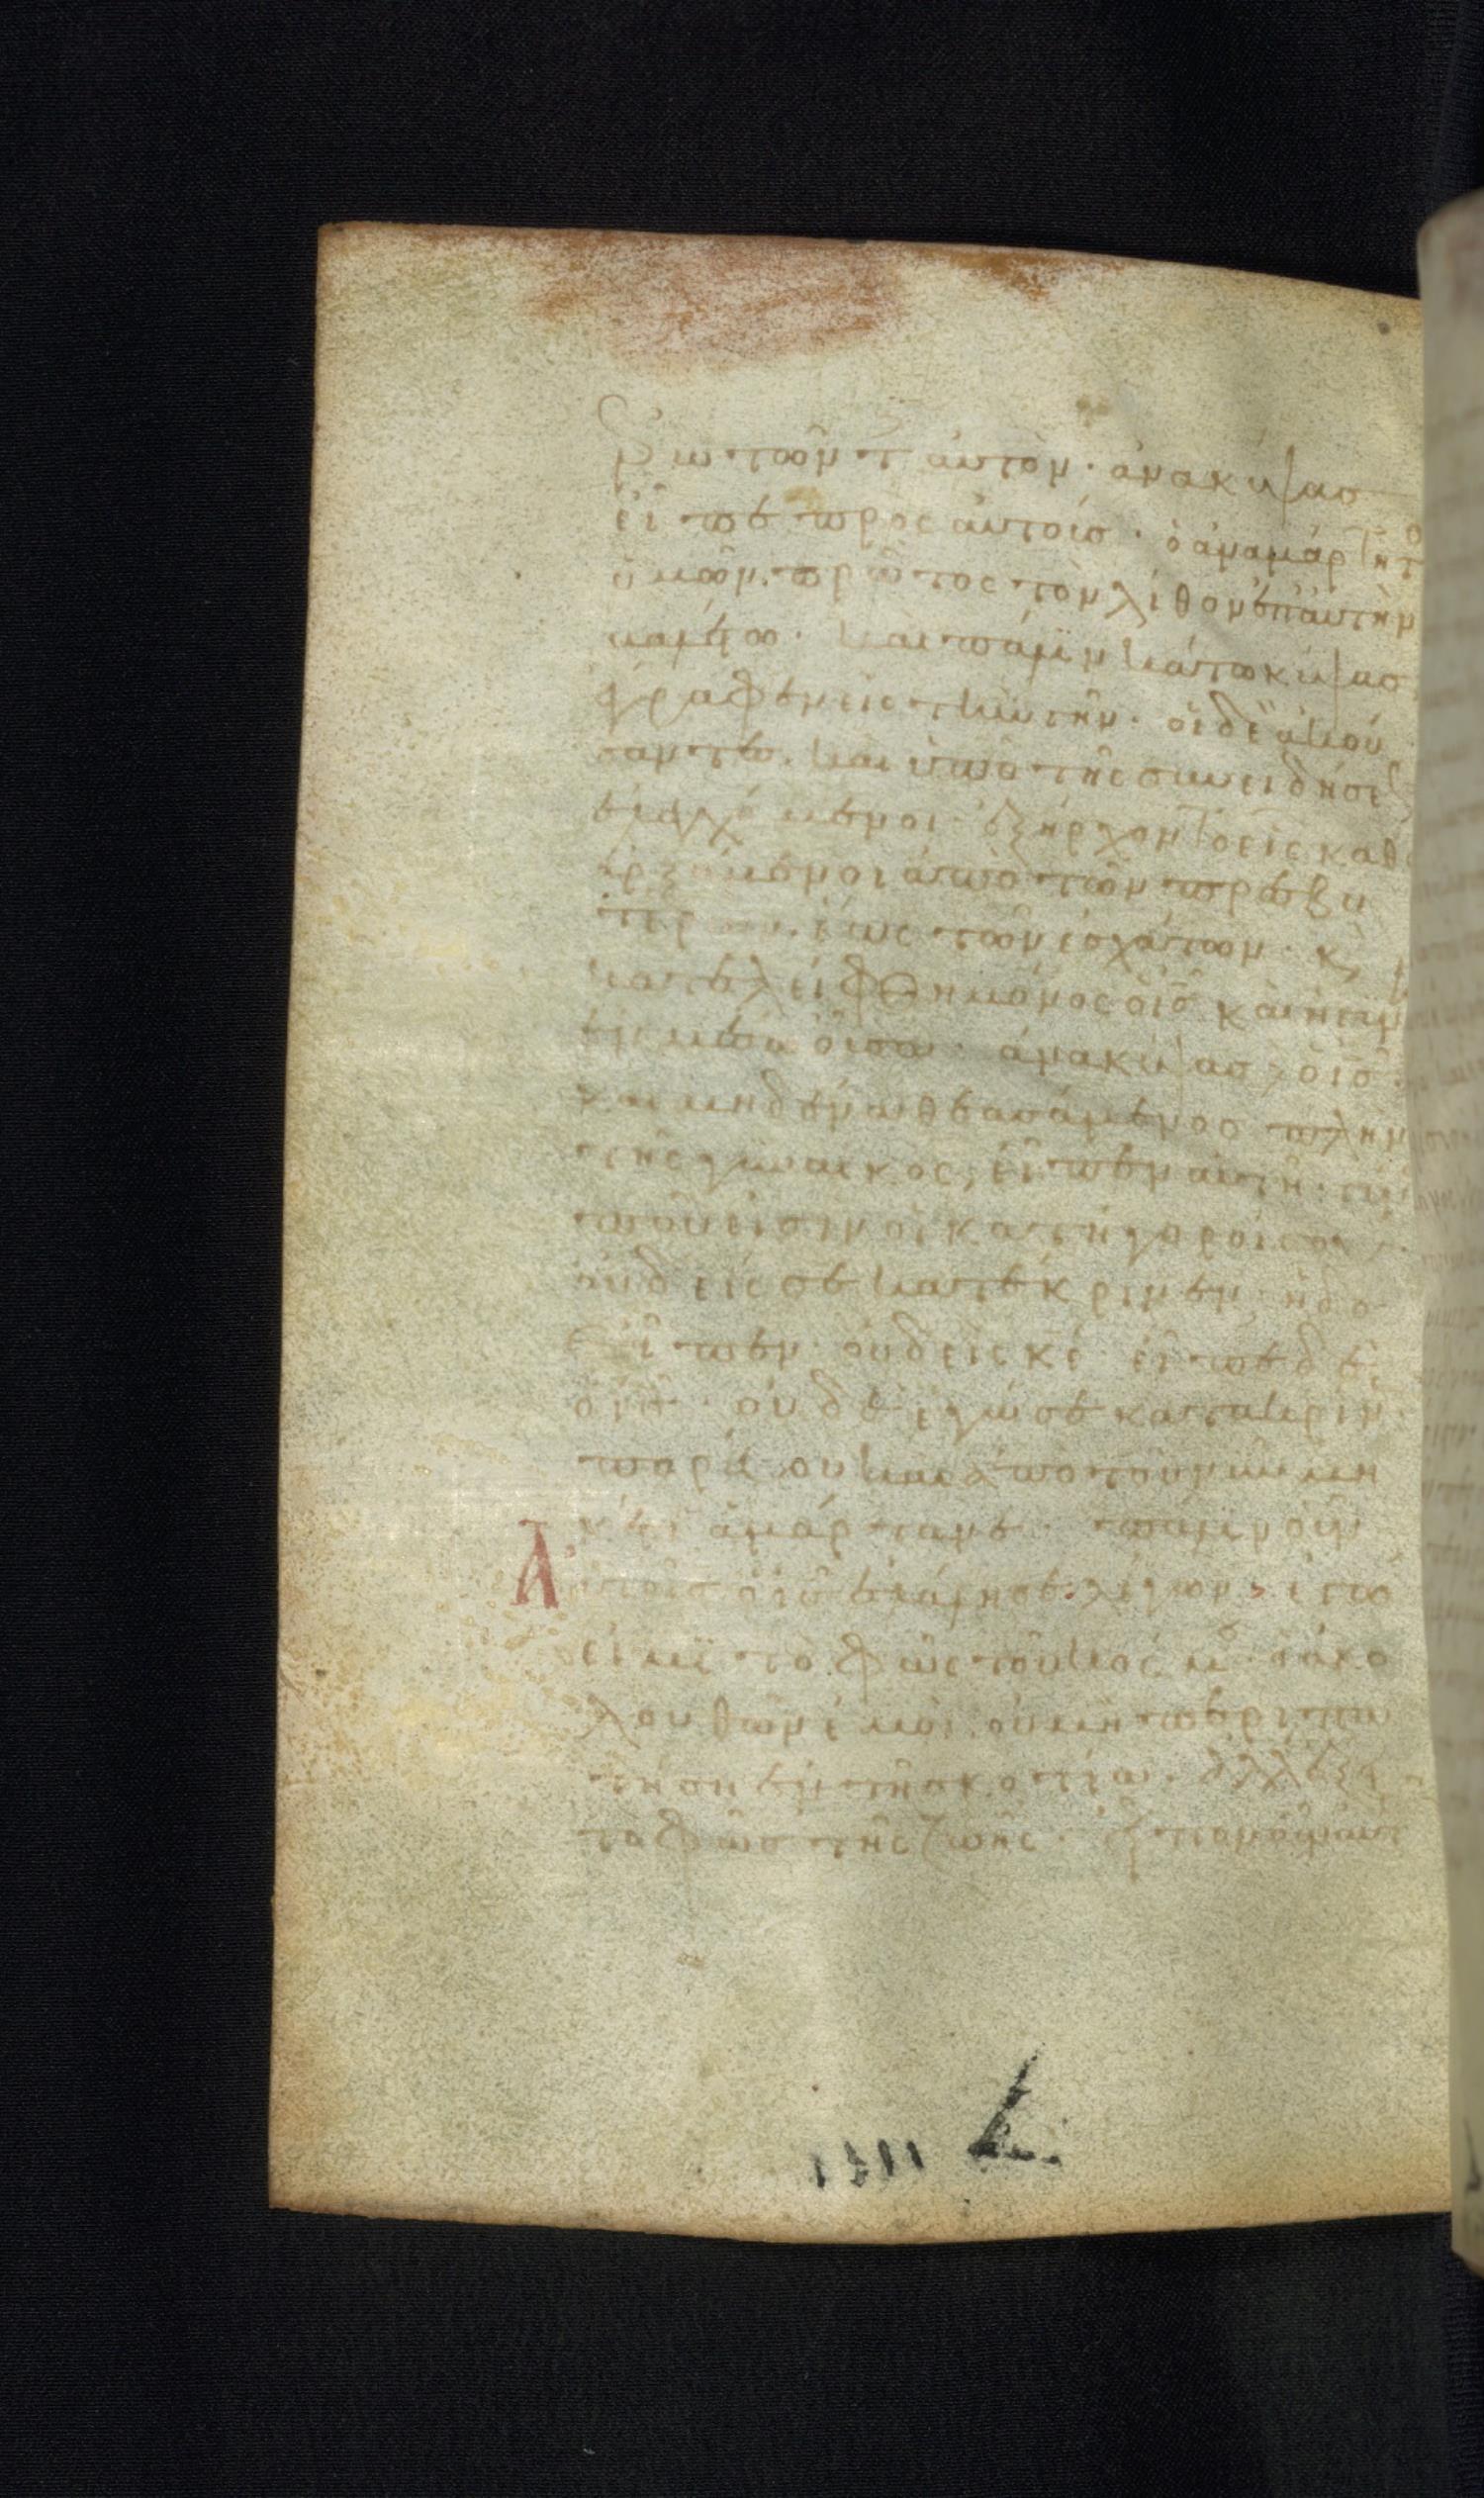 ρωτῶντ αὐτὸν· ἀνακύψας
εἶπε πρὸς αὐτοῖς· ὁ ἀναμάρτητο
ὑμῶν· πρῶτος τὸν λίθον ἐπ αὐτὴν
βαλέτω· καὶ πάλιν κάτω κύψας
γράφεν εἰς τ αὐτὴν· οἱ δὲ ἀκού
σαντες· καὶ ὑπὸ τῆς συνειδήσε
ἐλεγχόμενοι ἐξήρχοντο εἷς καθ
ἀρξάμενοι ἀπὸ τῶν πρεσβυ
τέρων· ἕως τῶν ἐσχάτων· κ
κατελείφθη μόνος ὁ ις καὶ ἡ γυν
ἐν μέσω οὖσα· ἀνακύψας ὁ ις
καὶ μηδένα θεασάμενος πλὴν
τῆς γυναικός, εἶπεν αὐτῆ·
ποῦ εἰσιν οἱ κατήγοροί σου
οὐδείς σε κατέκρινεν· ἡ δὲ
εἶπεν· οὐδείς κε· εἶπε δὲ
ὁ ις· οὐδὲ ἐγώ σε κατακρίν
πορεύου καὶ ἀπὸ τοῦ νῦν μη
κέτι ἁμάρτανε· πάλιν οὖν
Αὐτοῖς ὁ ις ἐλάλησε· λέγων· ἐγώ
εἰμι τὸ φῶς τοῦ κόσμου· ὁ ἀκο
λουθῶν ἐμοὶ· οὐ μὴ περιπα
τήση ἐν τῆ σκοτία· ἀλλ ἕξει
τὸ φῶς τῆς ζωῆς·